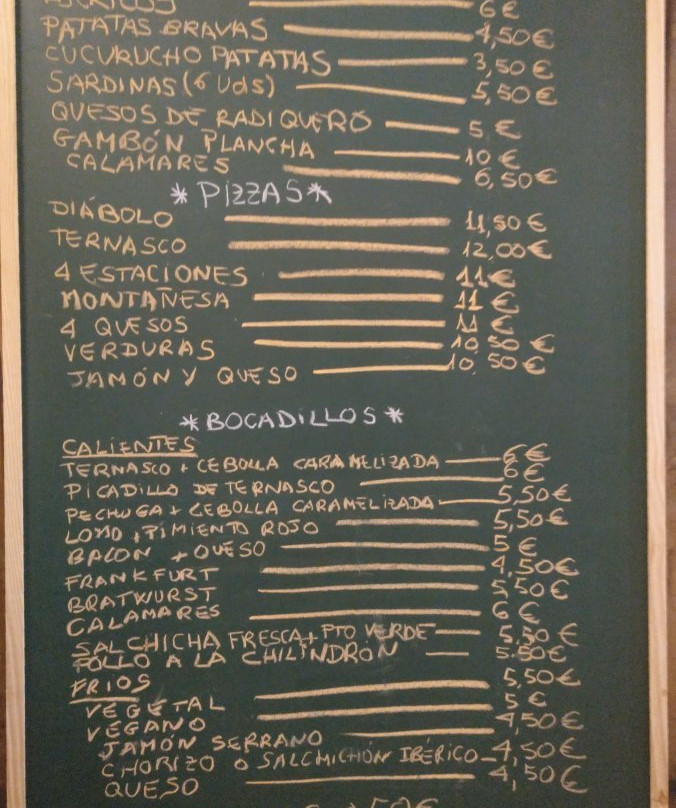 6€
PATATAS BRAVAS 4,50€
CUCURUCHO PATATAS 3,50€
SARDINAS (6 Uds) 5,50€
QUESOS DE RADIQUERO 5 €
GAMBÓN PLANCHA 10 €
CALAMARES 6,50€
* PIZZAS *
DIÁBOLO 11,50€
TERNASCO 12,00€
4 ESTACIONES 11€
MONTAÑESA 11 €
4 QUESOS 11 €
VERDURAS 10,50 €
JAMÓN Y QUESO 10,50€
* BOCADILLOS *
CALIENTES
TERNASCO + CEBOLLA CARAMELIZADA 6€
PICADILLO DE TERNASCO 6€
PECHUGA + CEBOLLA CARAMELIZADA 5,50€
LOMO + PIMIENTO ROJO 5,50€
BACON + QUESO 5 €
FRANKFURT 4,50€
BRATWURST 5,50€
CALAMARES 6 €
SALCHICHA FRESCA + PTO VERDE 5,50 €
POLLO A LA CHILINDRÓN 5.50€
FRIOS
VEGETAL 5,50€
VEGANO 5 €
JAMÓN SERRANO 4,50€
CHORIZO O SALCHICHÓN IBÉRICO 4,50€
QUESO 4,50€